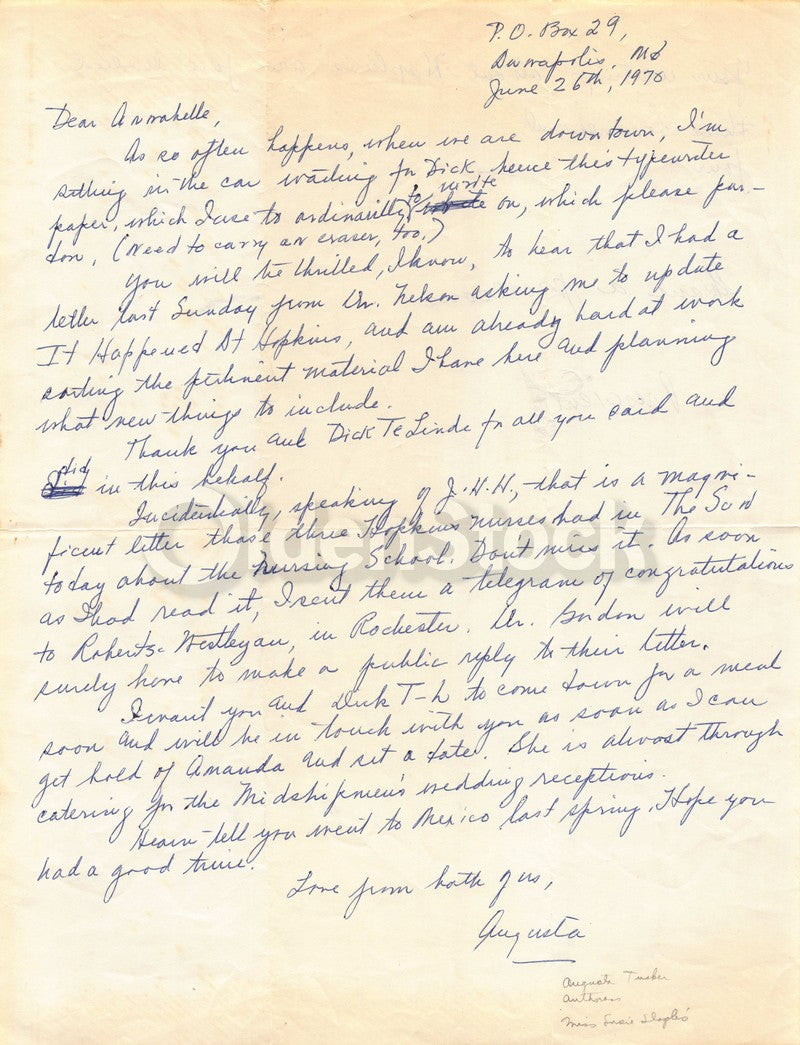 P.O. Box 29,
Annapolis, Md
June 26th, 1970
Dear Annabelle,
As so often happens, when we are downtown, I'm
sitting in the car waiting for Dick, hence this typewriter
paper, which I use to ordinarily to write on, which please par-
don, (Need to carry an eraser, too.)
You will be thrilled, I know, to hear that I had a
letter last Sunday from Dr. Nelson asking me to update
It Happened At Hopkins, and am already hard at work
sorting the pertinent material I have here and planning
what new things to include.
Thank you and Dick TeLinde for all you said and
did in this behalf.
Incidentially, speaking of J.H.H., that is a magni-
ficent letter those three Hopkins nurses had in The Sun
today about the Nursing School. Don't miss it. As soon
as I had read it, I sent them a telegram of congratulations
to Roberts-Westleyan, in Rochester. Dr. Gordon will
surely have to make a public reply to their letter.
I want you and Dick T-L to come down for a meal
soon and will be in touch with you as soon as I can
get hold of Amanda and set a date. She is almost through
catering for the Midshipmen's wedding receptions.
Hear-tell you went to Mexico last spring. Hope you
had a good time.
Love from both of us,
Augusta
Augusta Tucker
Authoress
"Miss Susie Slagle's"
OldenStock